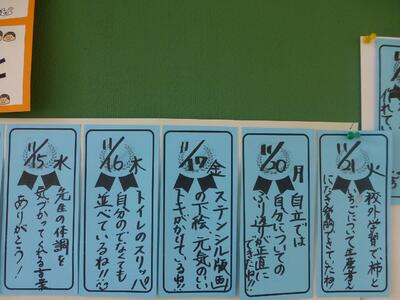 11/15 水
先生の体調を
気づかってくれる言葉
ありがとう!
11/16 木
トイレのスリッパ
自分のでなくても
並べているね!!
11/17 金
ステンシル版画
の下絵 元気のいい
11/20 月
自立では
自分についての
ふり返りが正直に
できたね!!
11/21 火
校外学習で柿と
について生産者さん